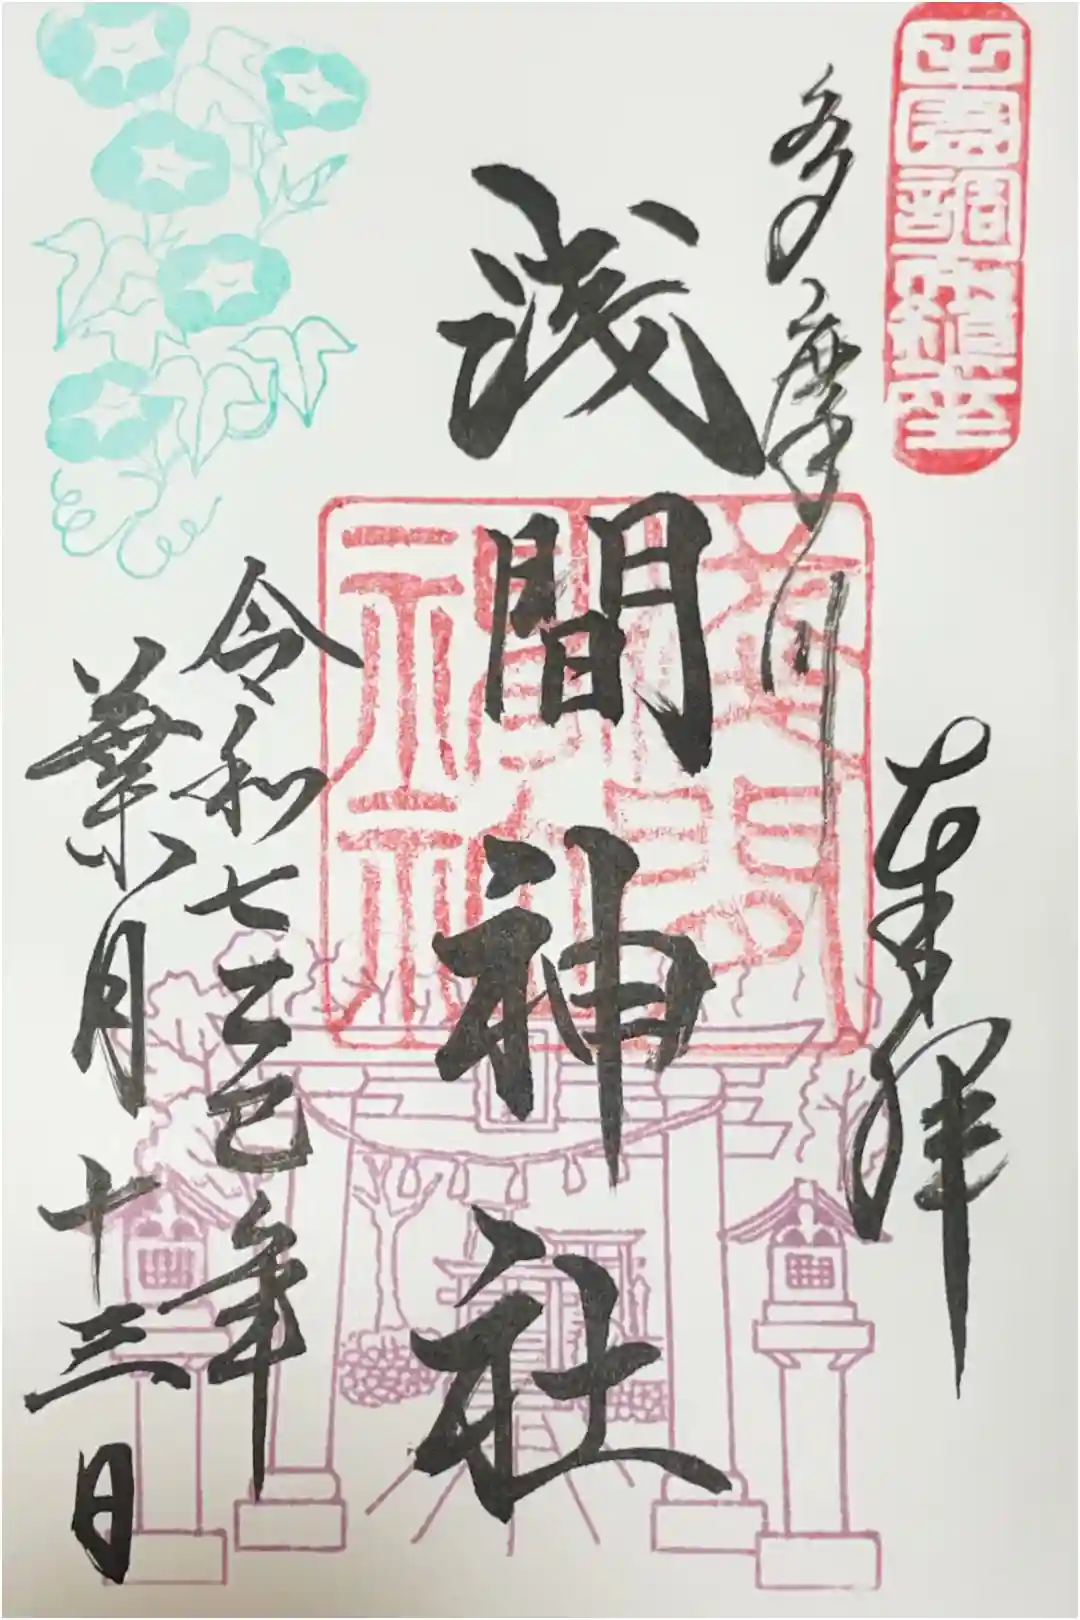 田園調布鎮座
奉拝
多摩川
浅間神社
浅間
神社
令和七乙巳年
葉月十三日